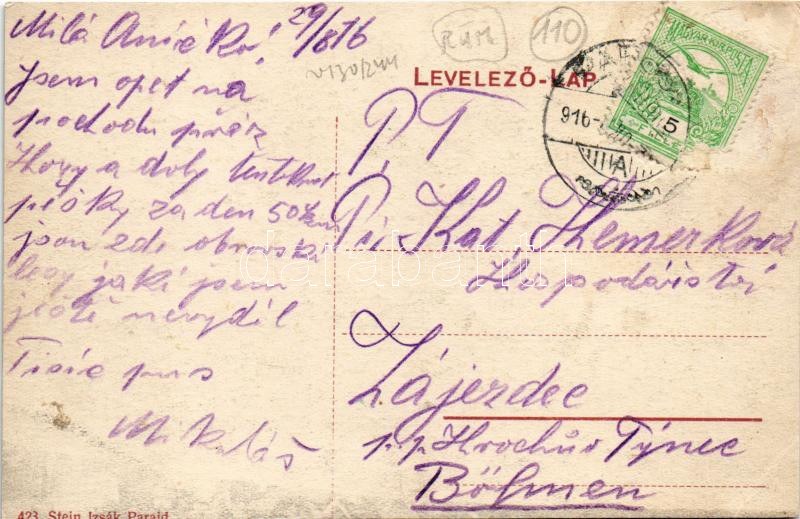 Milá Aničko! 29/8 16
Jsem opet na
pochodu přez
Hory a doly tentokrat
pěšky za den 50 Km
jsou zde obrovské
hory jaké jsem
ještě nevydil
Tisíc pus
Mikuláš
LEVELEZŐ-LAP
110
MAGYAR KIR. POSTA
5
916
A
P. T
Kat. Kemerková
Hospodářství
Zájezdec
p. p. Hrochův Týnec
Böhmen
darabanth
423 Stein Izsák Parajd